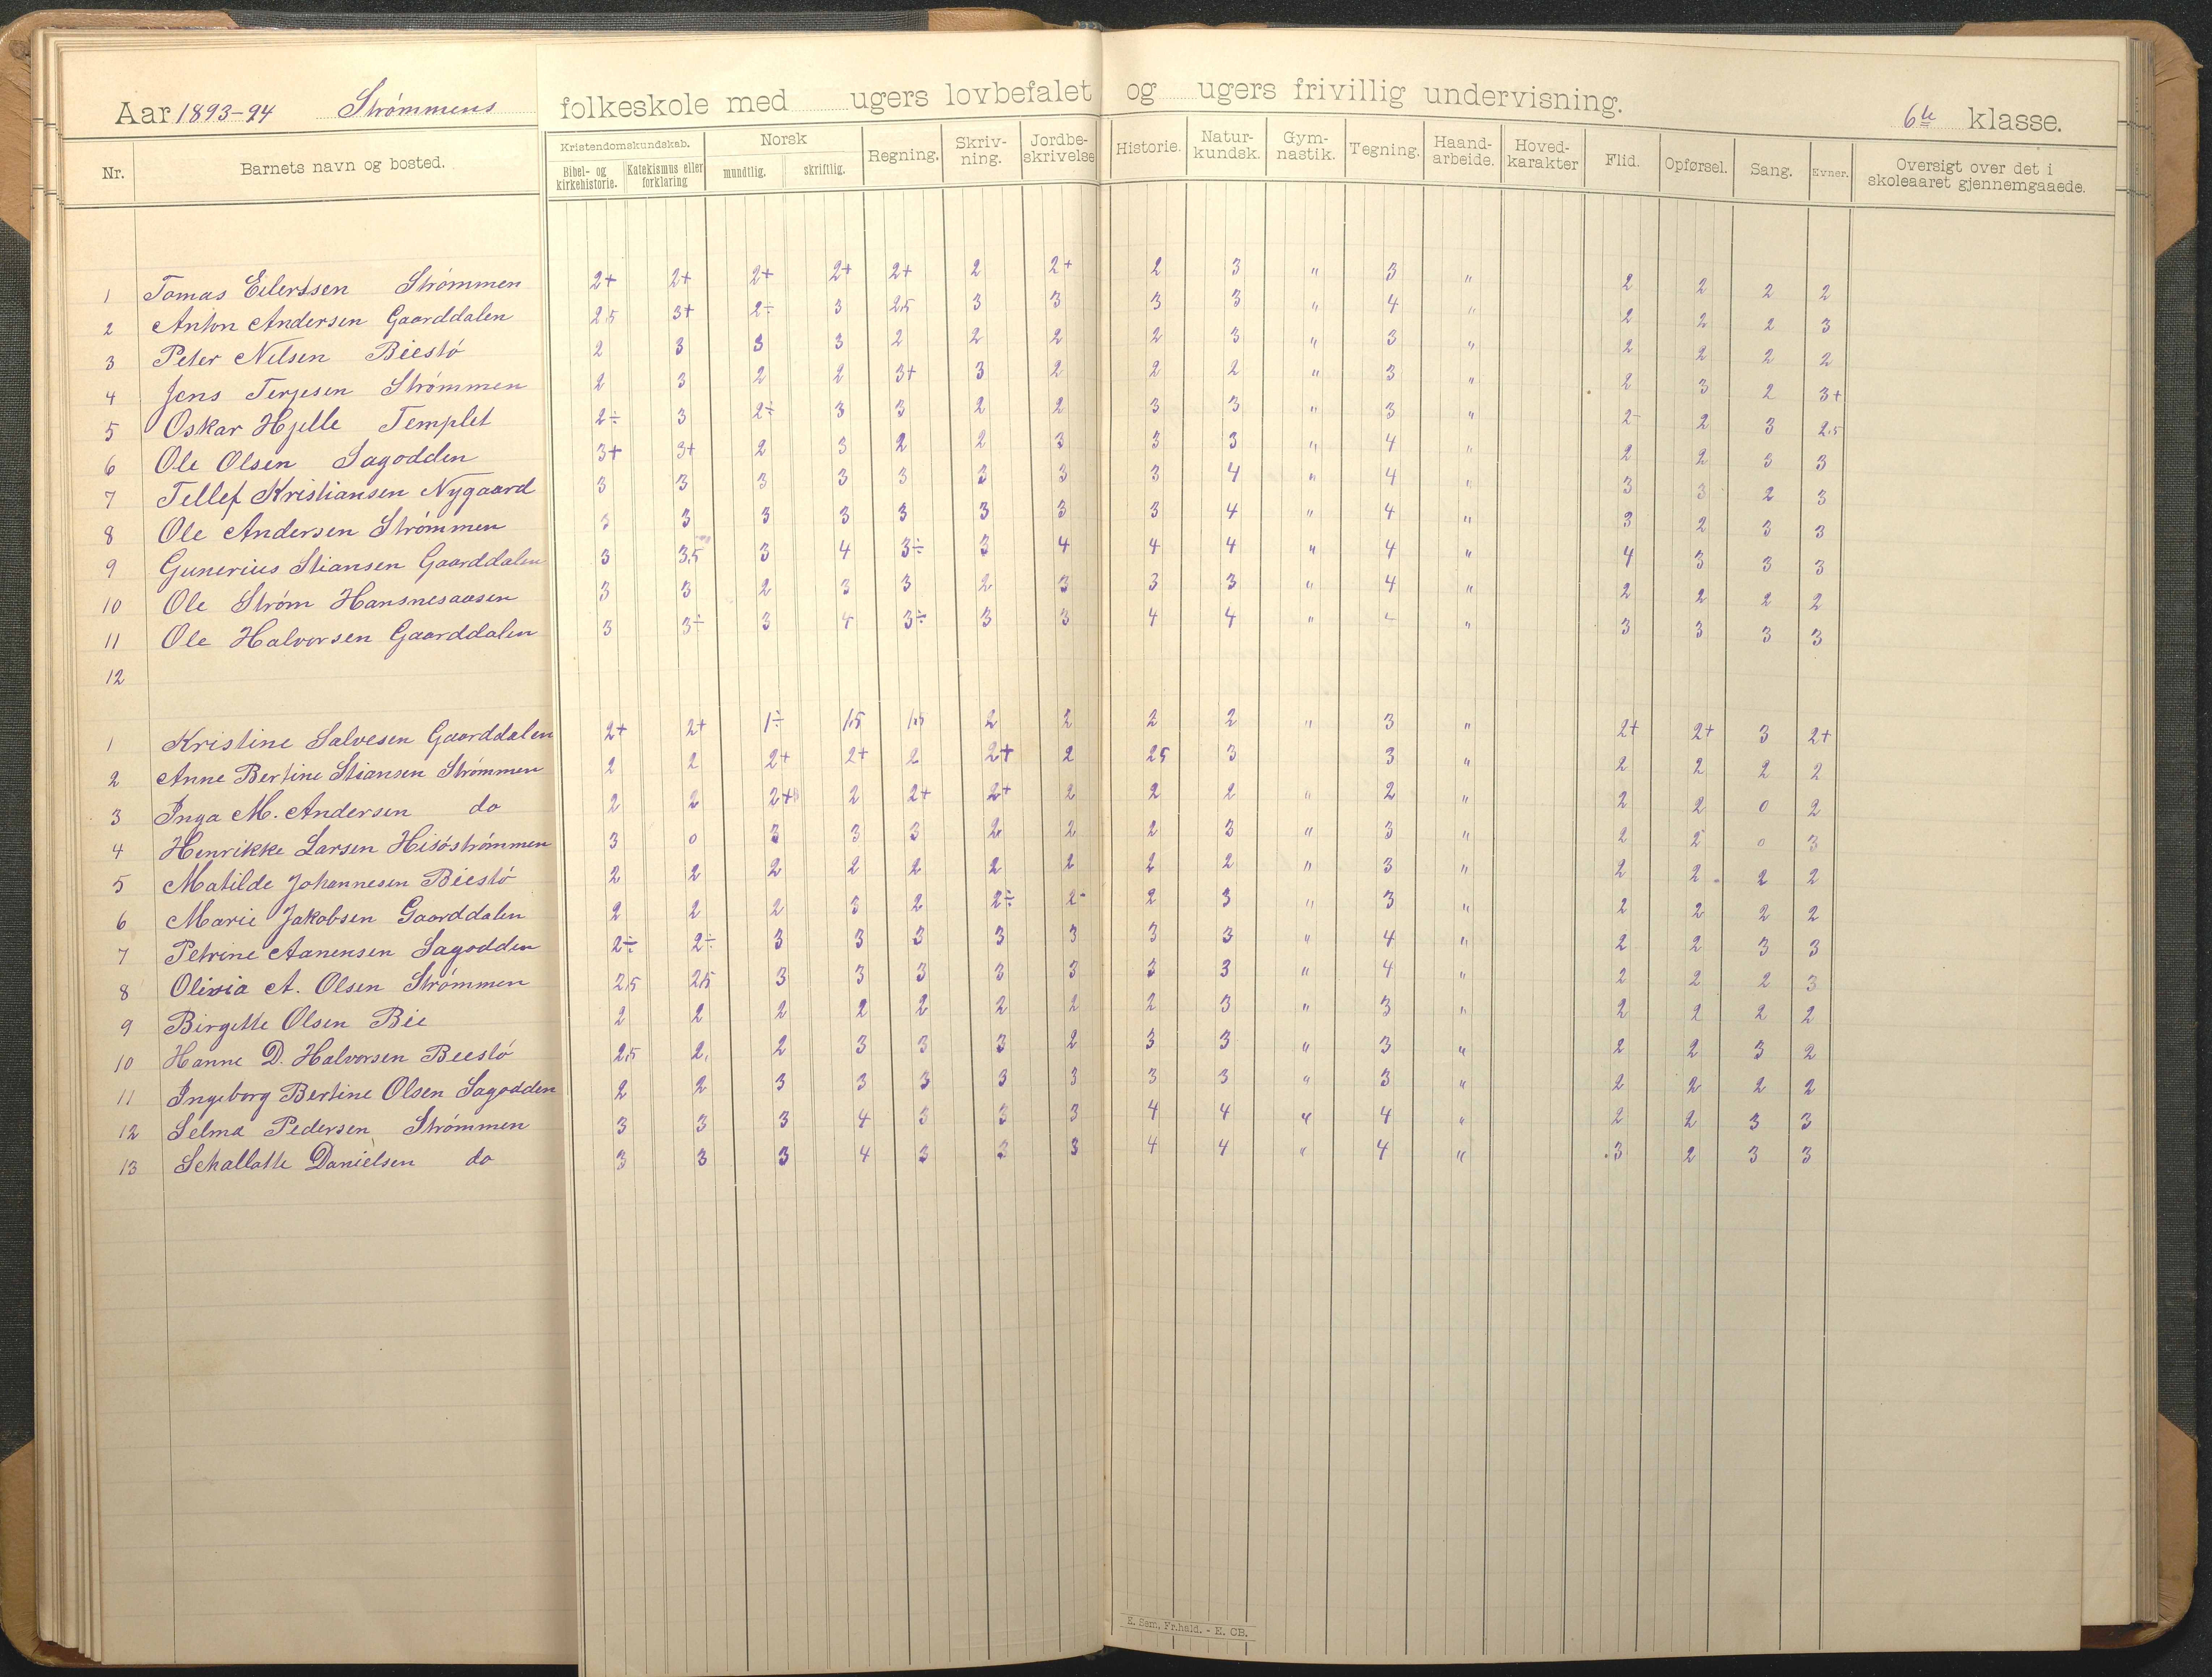 Aar 1893-94 Strømmens folkeskole med ugers lovbefalet og ugers frivillig undervisning. 6te klasse.
Nr. Barnets navn og bosted. Kristendomskundskab. Bibel- og kirkehistorie. Katekismus eller forklaring Norsk mundtlig. skriftlig. Regning. Skriv-ning. Jordbe-skrivelse Historie. Natur-kundsk. Gym-nastik. Tegning. Haand-arbeide. Hoved-karakter Flid. Opførsel. Sang. Evner. Oversigt over det i skoleaaret gjennemgaaede.
1 Tomas Eilertsen Strømmen 2+ 2+ 2+ 2+ 2+ 2 2+ 2 3 " 3 " 2 2 2 2
2 Anton Andersen Gaarddalen 2,5 3+ 2÷ 3 2,5 3 3 3 3 " 4 " 2 2 2 3
3 Peter Nilsen Biestø 2 3 3 3 2 2 2 2 3 " 3 " 2 2 2 2
4 Jens Terjesen Strømmen 2 3 2 2 3+ 3 2 2 2 " 3 " 2 3 2 3+
5 Oskar Hjelle Templet 2÷ 3 2÷ 3 3 2 2 3 3 " 3 " 2- 2 3 2.5
6 Ole Olsen Sagodden 3+ 3+ 2 3 2 2 3 3 3 " 4 " 2 2 3 3
7 Tellef Kristiansen Nygaard 3 3 3 3 3 3 3 3 4 " 4 " 3 3 2 3
8 Ole Andersen Strømmen 3 3 3 3 3 3 3 3 4 " 4 " 3 2 3 3
9 Gunerius Stiansen Gaarddalen 3 3,5 3 4 3÷ 3 4 4 4 " 4 " 4 3 3 3
10 Ole Strøm Hansnesaasen 3 3 2 3 3 2 3 3 3 " 4 " 2 2 2 2
11 Ole Halvorsen Gaarddalen 3 3÷ 3 4 3÷ 3 3 4 4 " " 3 3 3 3
12
1 Kristine Salvesen Gaarddalen 2+ 2+ 1÷ 1,5 1,5 2 2 2 2 " 3 " 2+ 2+ 3 2+
2 Anne Bertine Stiansen Strømmen 2 2 2+ 2+ 2 2+ 2 25 3 3 " 2 2 2 2
3 Inga M. Andersen do 2 2 2+ 2 2+ 2+ 2 2 2 " 2 " 2 2 0 2
4 Henrikke Larsen Hisøstrømmen 3 0 3 3 3 2 2 2 3 " 3 " 2 2 0 3
5 Matilde Johannesen Biestø 2 2 2 2 2 2 2 2 2 " 3 " 2 2 2 2
6 Marie Jakobsen Gaarddalen 2 2 2 3 2 2÷ 2- 2 3 " 3 " 2 2 2 2
7 Petrine Aanensen Sagodden 2÷ 2÷ 3 3 3 3 3 3 3 " 4 " 2 2 3 3
8 Olivia A. Olsen Strømmen 2,5 2,5 3 3 3 3 3 3 3 " 4 " 2 2 2 3
9 Birgitte Olsen Bie 2 2 2 2 2 2 2 2 3 " 3 " 2 2 2 2
10 Hanne D. Halvorsen Biestø 2,5 2, 2 3 3 3 2 3 3 " 3 " 2 2 3 2
11 Ingeborg Bertine Olsen Sagodden 2 2 3 3 3 3 3 3 3 " 3 " 2 2 2 2
12 Selma Pedersen Strømmen 3 3 3 4 3 3 3 4 4 " 4 " 2 2 3 3
13 Schallatte Danielsen do 3 3 3 4 3 3 3 4 4 " 4 " 3 2 3 3
E. Sem, Fr.hald. - E. CB.